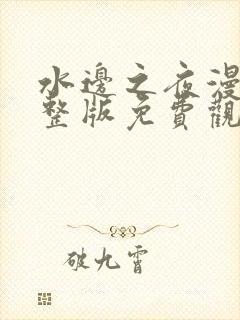 水邊之夜漫
整版免費觀
破九霄